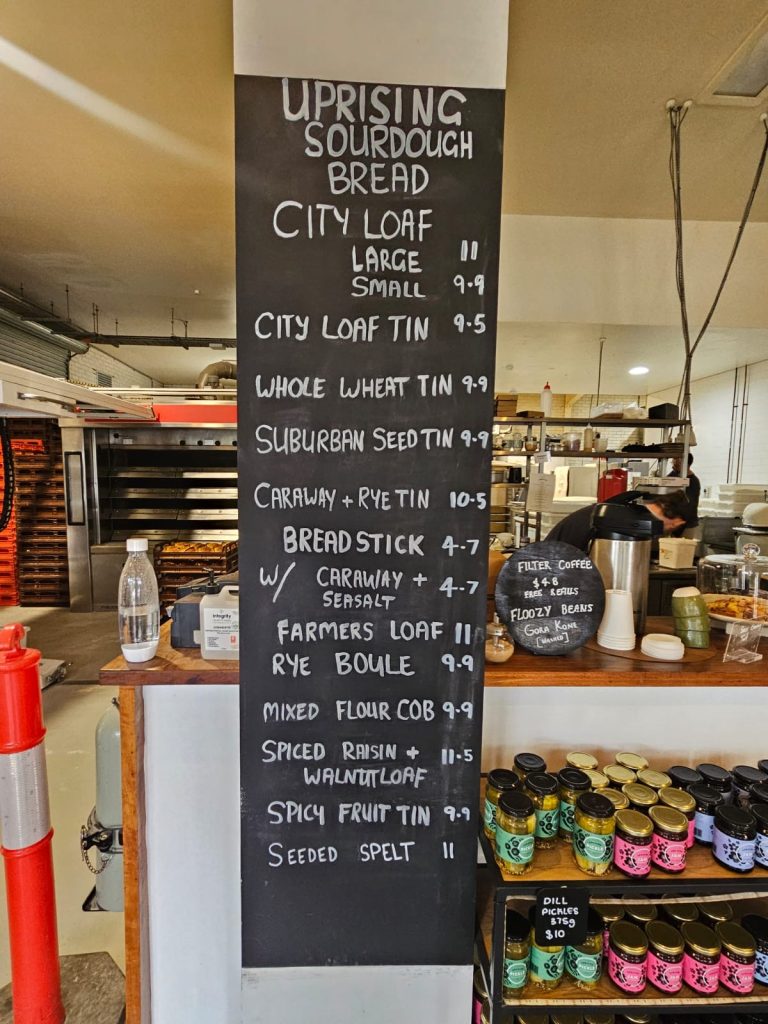 UPRISING
SOURDOUGH
BREAD
CITY LOAF
LARGE 11
SMALL 9.9
CITY LOAF TIN 9.5
WHOLE WHEAT TIN 9.9
SUBURBAN SEED TIN 9.9
CARAWAY + RYE TIN 10.5
BREADSTICK 4.7
W/ CARAWAY + 4.7
SEASALT
FARMERS LOAF 11
RYE BOULE 9.9
MIXED FLOUR COB 9.9
SPICED RAISIN + 11.5
WALNUT LOAF
SPICY FRUIT TIN 9.9
SEEDED SPELT 11
integrity
FILTER COFFEE
$4.8
FREE REFILLS
FLOOZY BEANS
GORA KONE
[WASHED]
PICKLE
JAM
DILL
PICKLES
375g
$10